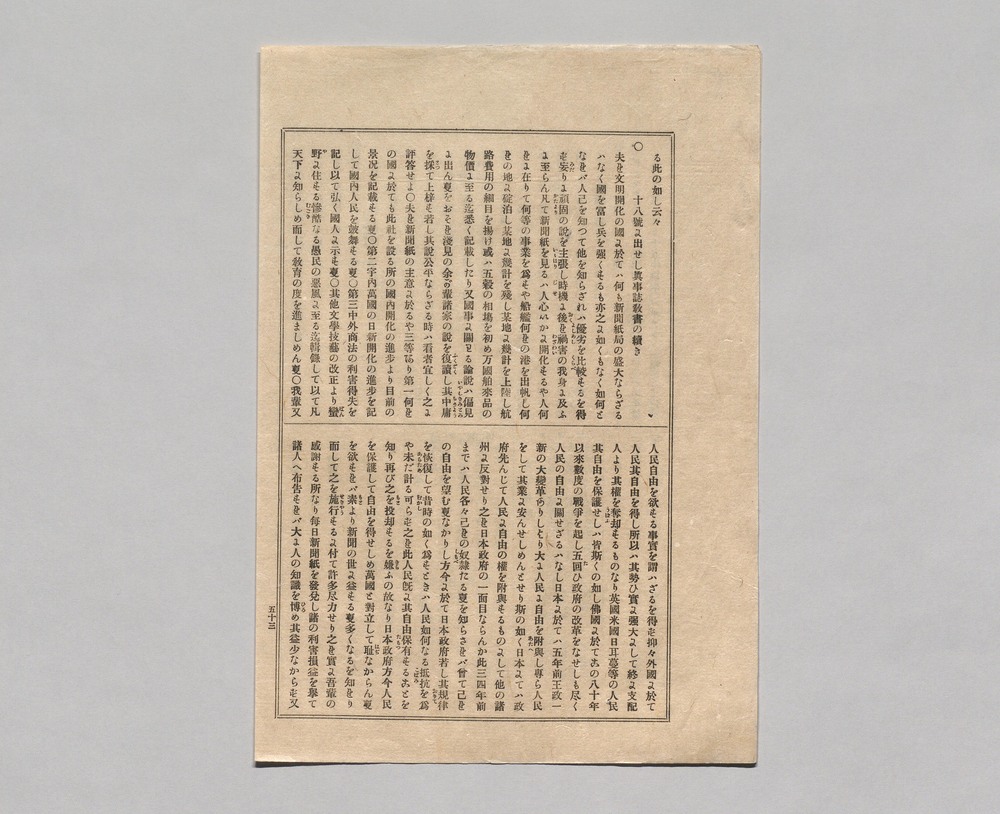 る此の如し云々
〇 十八號に出せし眞事誌敎書の續き
夫れ文明開化の國に於てハ何も新聞紙局の盛大ならざる
ハなく國を富し兵を強くするも亦之に如くもなく如何と
なれバ人己を知つて他を知らざれハ優劣を比較するを得
ず妄りに頑固の說を主張し時機に後れ禍害の我身に及ふ
に至らん凡て新聞紙を見るハ人心いかに開化するや人何
れに在りて何等の事業を爲すや船艦何れの港を出帆し何
れの地に碇泊し某地に幾計を殘し某地に幾計を上陸し航
路費用の細目を揚け或ハ五穀の相塲を初め万國舶來品の
物價に至る迄悉く記載したり又國事に關する論說ハ偏見
に出ん事をおそれ淺見の余が輩諸家の說を復讀し其中庸
を採て上梓す若し其說公平ならざる時ハ看者宜しく之に
評答せよ〇夫れ新聞紙の主意に於るや三等あり第一何れ
の國に於ても此社を設る所の國內開化の進步より目前の
景况を記載する事〇第二字內萬國の日新開化の進步を記
して國內人民を鼓舞する事〇第三中外商法の利害得失を
記し以て弘く國人に示す事〇其他文學技藝の改正より蠻
野に住する慘酷なる愚民の惡風に至る迄輯錄して以て凡
天下に知らしめ而して敎育の度を進ましめん事〇我輩又
人民自由を欲する事實を謂ハざるを得ず抑々外國に於て
人民其自由を得し所以ハ其勢ひ實に强大にして終に支配
人より其權を奪却するものなり英國米國日耳蔓等の人民
其自由を保護せしハ皆斯くの如し佛國に於て古の八十年
以來數度の戰爭を起し五回ひ政府の改革をなせしも尽く
人民の自由に關せざるハなし日本に於てハ五年前王政一
新の大變革ありしより大に人民に自由を附與し專ら人民
をして其業に安んせしめんとせり斯の如く日本にてハ政
府先んじて人民に自由の權を附與するものにして他の諸
州に反對せり之れ日本政府の一面目ならんか此三四年前
までハ人民各々己れの奴隷たる事を知らざれバ曾て己れ
の自由を望む事なかりし方今に於て日本政府若し其規律
を恢復して昔時の如く爲すときハ人民如何なる抵抗を爲
や未だ計る可らず之れ此人民旣に其自由保有することを
知り再び之を投却するを嫌ふの故なり日本政府方今人民
を保護して自由を得せしめ萬國と對立して耻なからん事
を欲すれバ素より新聞の世に益する事多くなるを知れり
而して之を施行するに付て許多尽力せり之れ實に吾輩の
感謝する所なり每日新聞紙を發兌し諸の利害損益を擧て
諸人へ布吿すれバ大に人の知識を博め其益少なからず又
五十三